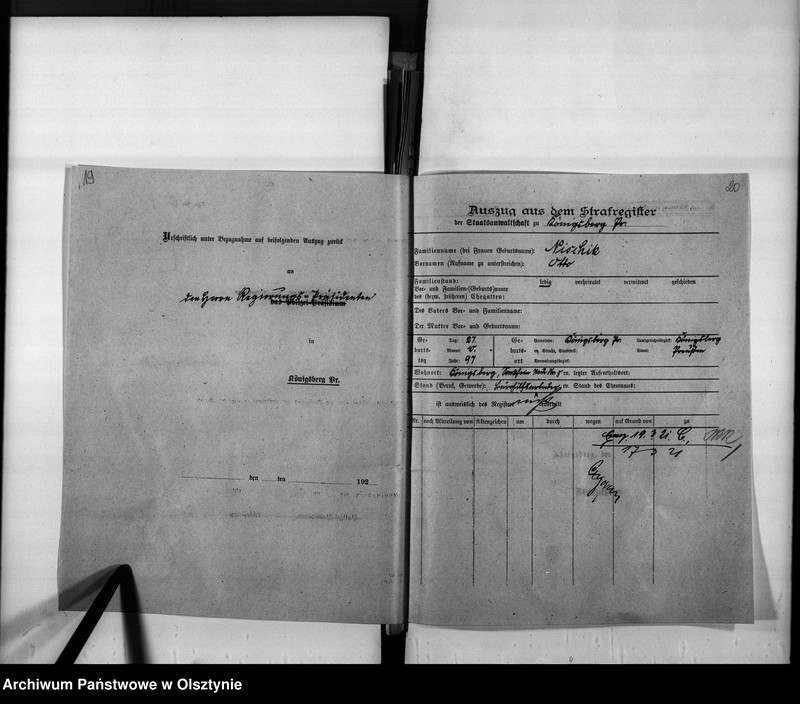 19
Urschriftlich unter Bezugnahme auf beifolgenden Auszug zurück
an
den Herrn Regierungs-Präsidenten
das Polizei-Präsidium
in
Königsberg Pr.
den ten 192
20
Auszug aus dem Strafregister
der Staatsanwaltschaft zu Königsberg Pr.
Familienname (bei Frauen Geburtsname): Nischik
Vornamen (Rufname zu unterstreichen): Otto
Familienstand: ledig verheiratet verwitwet geschieden
Vor- und Familien-(Geburts)name
des (bezw. früheren) Ehegatten:
Des Vaters Vor- und Familienname:
Der Mutter Vor- und Geburtsname:
Ge- Tag: 27. Ge- Gemeinde: Königsberg Pr. Landgerichtsbezirk: Königsberg
burts- Monat: V. burts- ev. Straße, Stadtteil: Staat: Preußen
tag Jahr: 97 ort Verwaltungsbezirk:
Wohnort: Königsberg, ev. letzter Aufenthaltsort:
Stand (Beruf, Gewerbe): ev. Stand des Ehemanns:
ist ausweislich des Registers nicht
Nr. nach Mitteilung von Aktenzeichen am durch wegen auf Grund von zu
19. 3. 21.
17 3 21
Archiwum Państwowe w Olsztynie